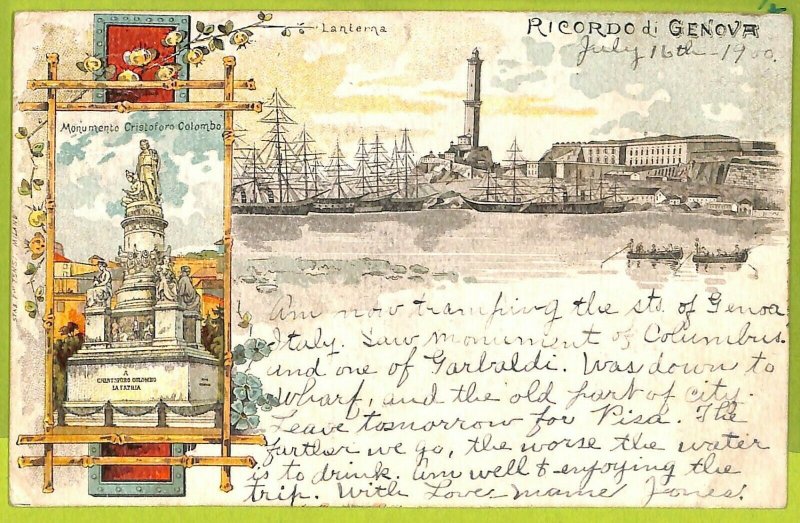 Lanterna
RICORDO di GENOVA
July 16th - 1900.
Monumento Cristoforo Colombo
A
CRISTOFORO COLOMBO
LA PATRIA
Am now tramping the sts. of Genoa
Italy. Saw monument of Columbus.
and one of Garbaldi. Was down to
wharf, and the old part of city.
Leave tomorrow for Pisa. The
further we go, the worse the water
is to drink. Am well & enjoying the
trip. With Love Mame Jones.